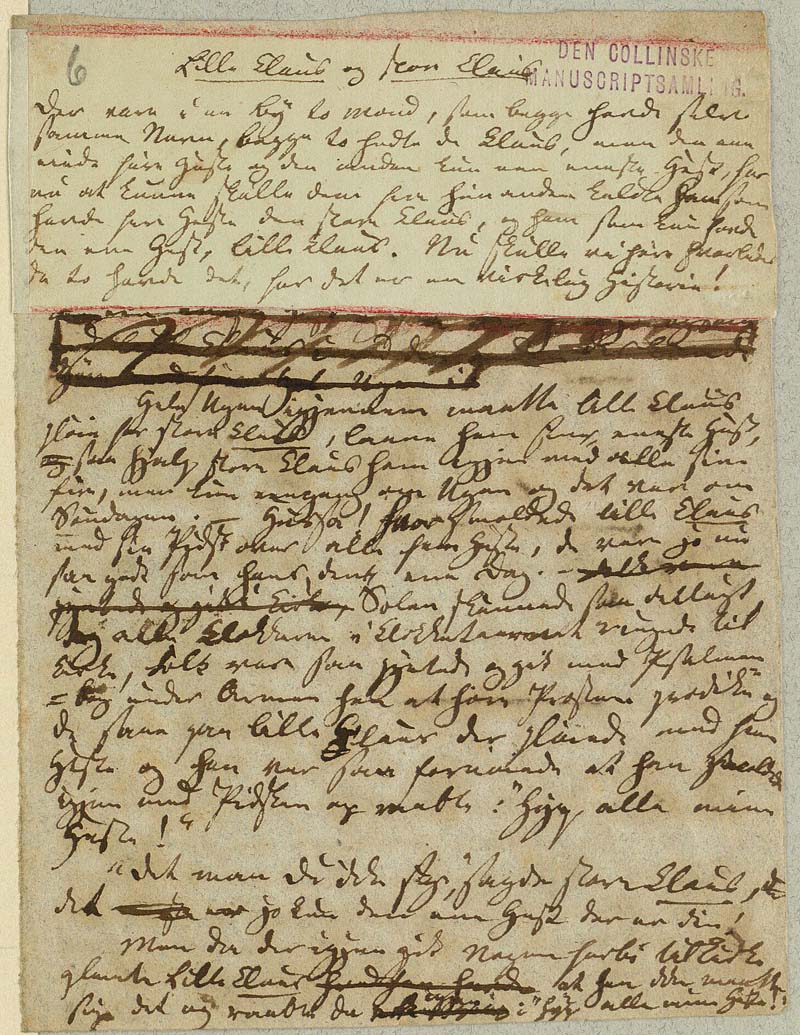 6
DEN COLLINSKE
MANUSCRIPTSAMLING.
Lille Claus og store Claus.
Der vare i en By to Mænd, som begge havde selve
samme Navn, begge to hedte de Claus, men den ene
eiede fire Heste og den anden kun een eneste Hest, for
nu at kunne skille dem fra hinanden kaldte han som
havde fire Heste den store Claus, og ham som kun havde
den ene Hest, lille Claus. Nu skulle vi høre hvorledes
de to havde det, for det er en virkelig Historie!
Hele Ugen igjennem maatte lille Claus
pløie for store Claus, laane ham sin eneste Hest,
saa hjalp store Claus ham igjen med alle sine
fire, men kun eengang om Ugen og det var om
Søndagen. — Hussa! hvor smeldede lille Claus
med sin Pidsk over alle fem Heste, de vare jo nu
saa godt som hans den ene Dag.
Solen skinnede saa deiligt
alle Klokkerne i Kirketaarnet ringede til
Kirke, Folk vare saa pyntede og gik med Psalme
= bog under Armen hen at høre Præsten prædike og
de saae paa lille Claus der pløiede med fem
Heste og han var saa fornøiet at han smeldede
igjen med Pidsken og raabte: "Hyp, alle mine
Heste!"
"Det maa Du ikke sige," sagde store Claus,
det jo kun den ene Hest der er din!
Men da der igjen gik Nogen forbi til Kirke
glemte Lille Claus at han ikke maatte
sige det og raabte da: "hyp alle mine Heste!"